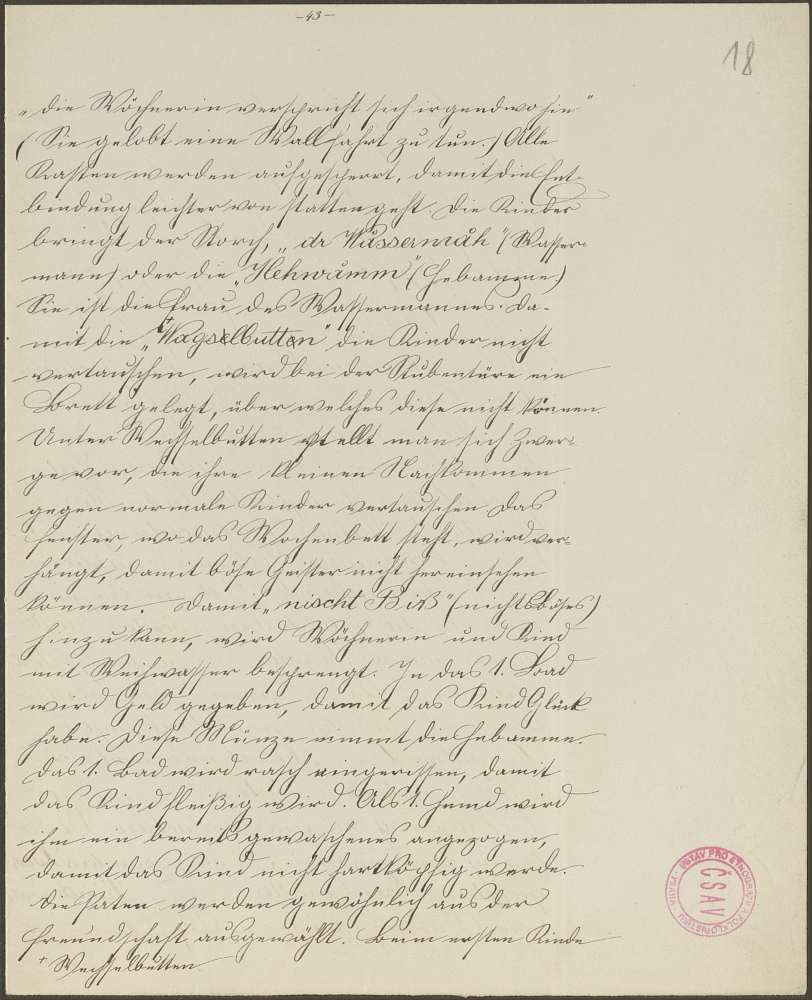 -43-
18
„Die Wöchnerin verspricht sich irgendwohin"
(Sie gelobt eine Wallfahrt zu tun.) Alle
Kasten werden aufgesperrt, damit die Ent-
bindung leichter von statten geht. Die Kinder
bringt der Storch, „dr Wassermåh" (Wasser-
mann) oder die „Hehwåmm" (Hebamme)
Sie ist die Frau des Wassermannes. Da-
mit die „Wagselbutten" + die Kinder nicht
vertauschen, wird bei der Stubentüre ein
Brett gelegt, über welches diese nicht können.
Unter Wechselbutten stellt man sich Zwer-
ge vor, die ihre kleinen Nachkommen
gegen normale Kinder vertauschen. Das
Fenster, wo das Wochenbett steht, wird ver-
hängt, damit böse Geister nicht hereinsehen
können. Damit „nischt Biß" (nichts böses)
hinzu kann, wird Wöchnerin und Kind
mit Weihwasser besprengt. In das 1. Bad
wird Geld gegeben, damit das Kind Glück
habe. Diese Münze nimmt die Hebamme.
Das 1. Bad wird rasch eingerissen, damit
das Kind fleißig wird. Als 1. Hemd wird
ihm ein bereits gewaschenes angezogen,
damit das Kind nicht hartköpfig werde.
Die Paten werden gewöhnlich aus der
Freundschaft ausgewählt. Beim ersten Kinde
+ Wechselbutten
ÚSTAV PRO ETNOGRAFII A FOLKLORISTIKU · PRAHA
ČSAV